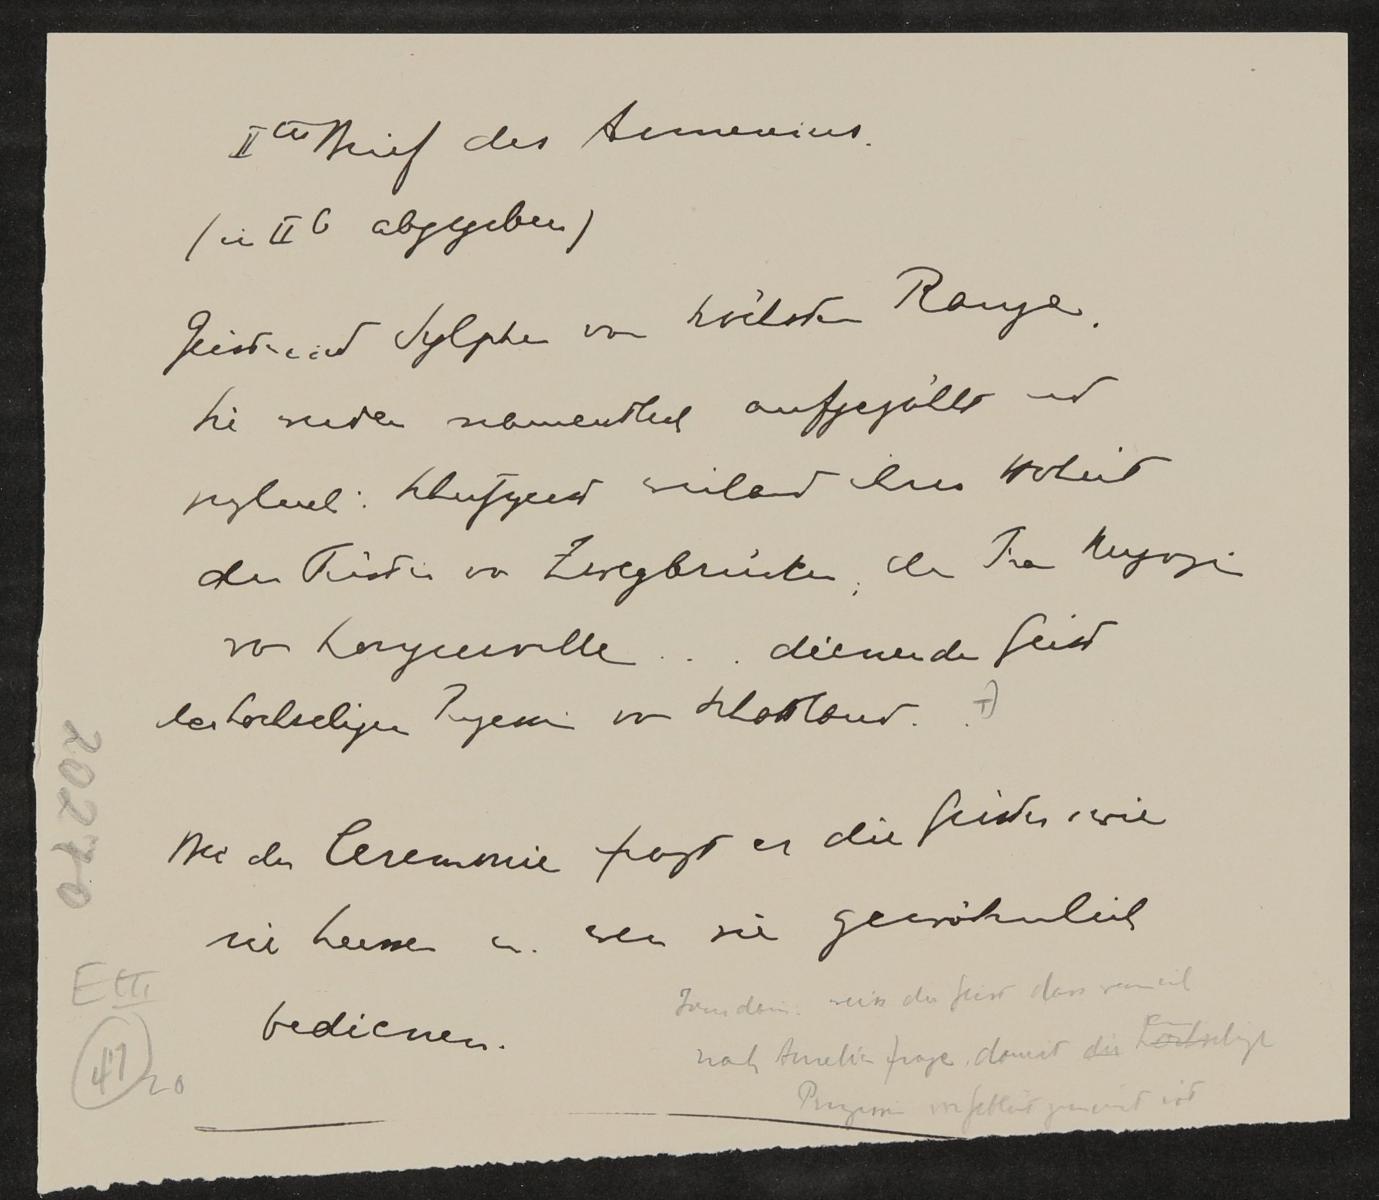 IIter Brief des Armenius.
(in IIb abgegeben)
Geister und Sylphen von höchstem Range.
Sie werden namentlich aufgezählt und
zugleich: Schutzgeist weiland ihrer Hoheit
der Fürstin von Zweybrücken, der Frau Herzogin
von Longueville . . . dienender Geist
der hochseligen Prinzessin von Schottland. . +)
Bei der Ceremonie fragt er die Geister, wie
sie heissen u. wen sie gewöhnlich
bedienen.
weiss der Geist dass wenn ich
nach Amelie frage, damit die hochselige
Prinzessin gemeint ist
20270
E III
47 20